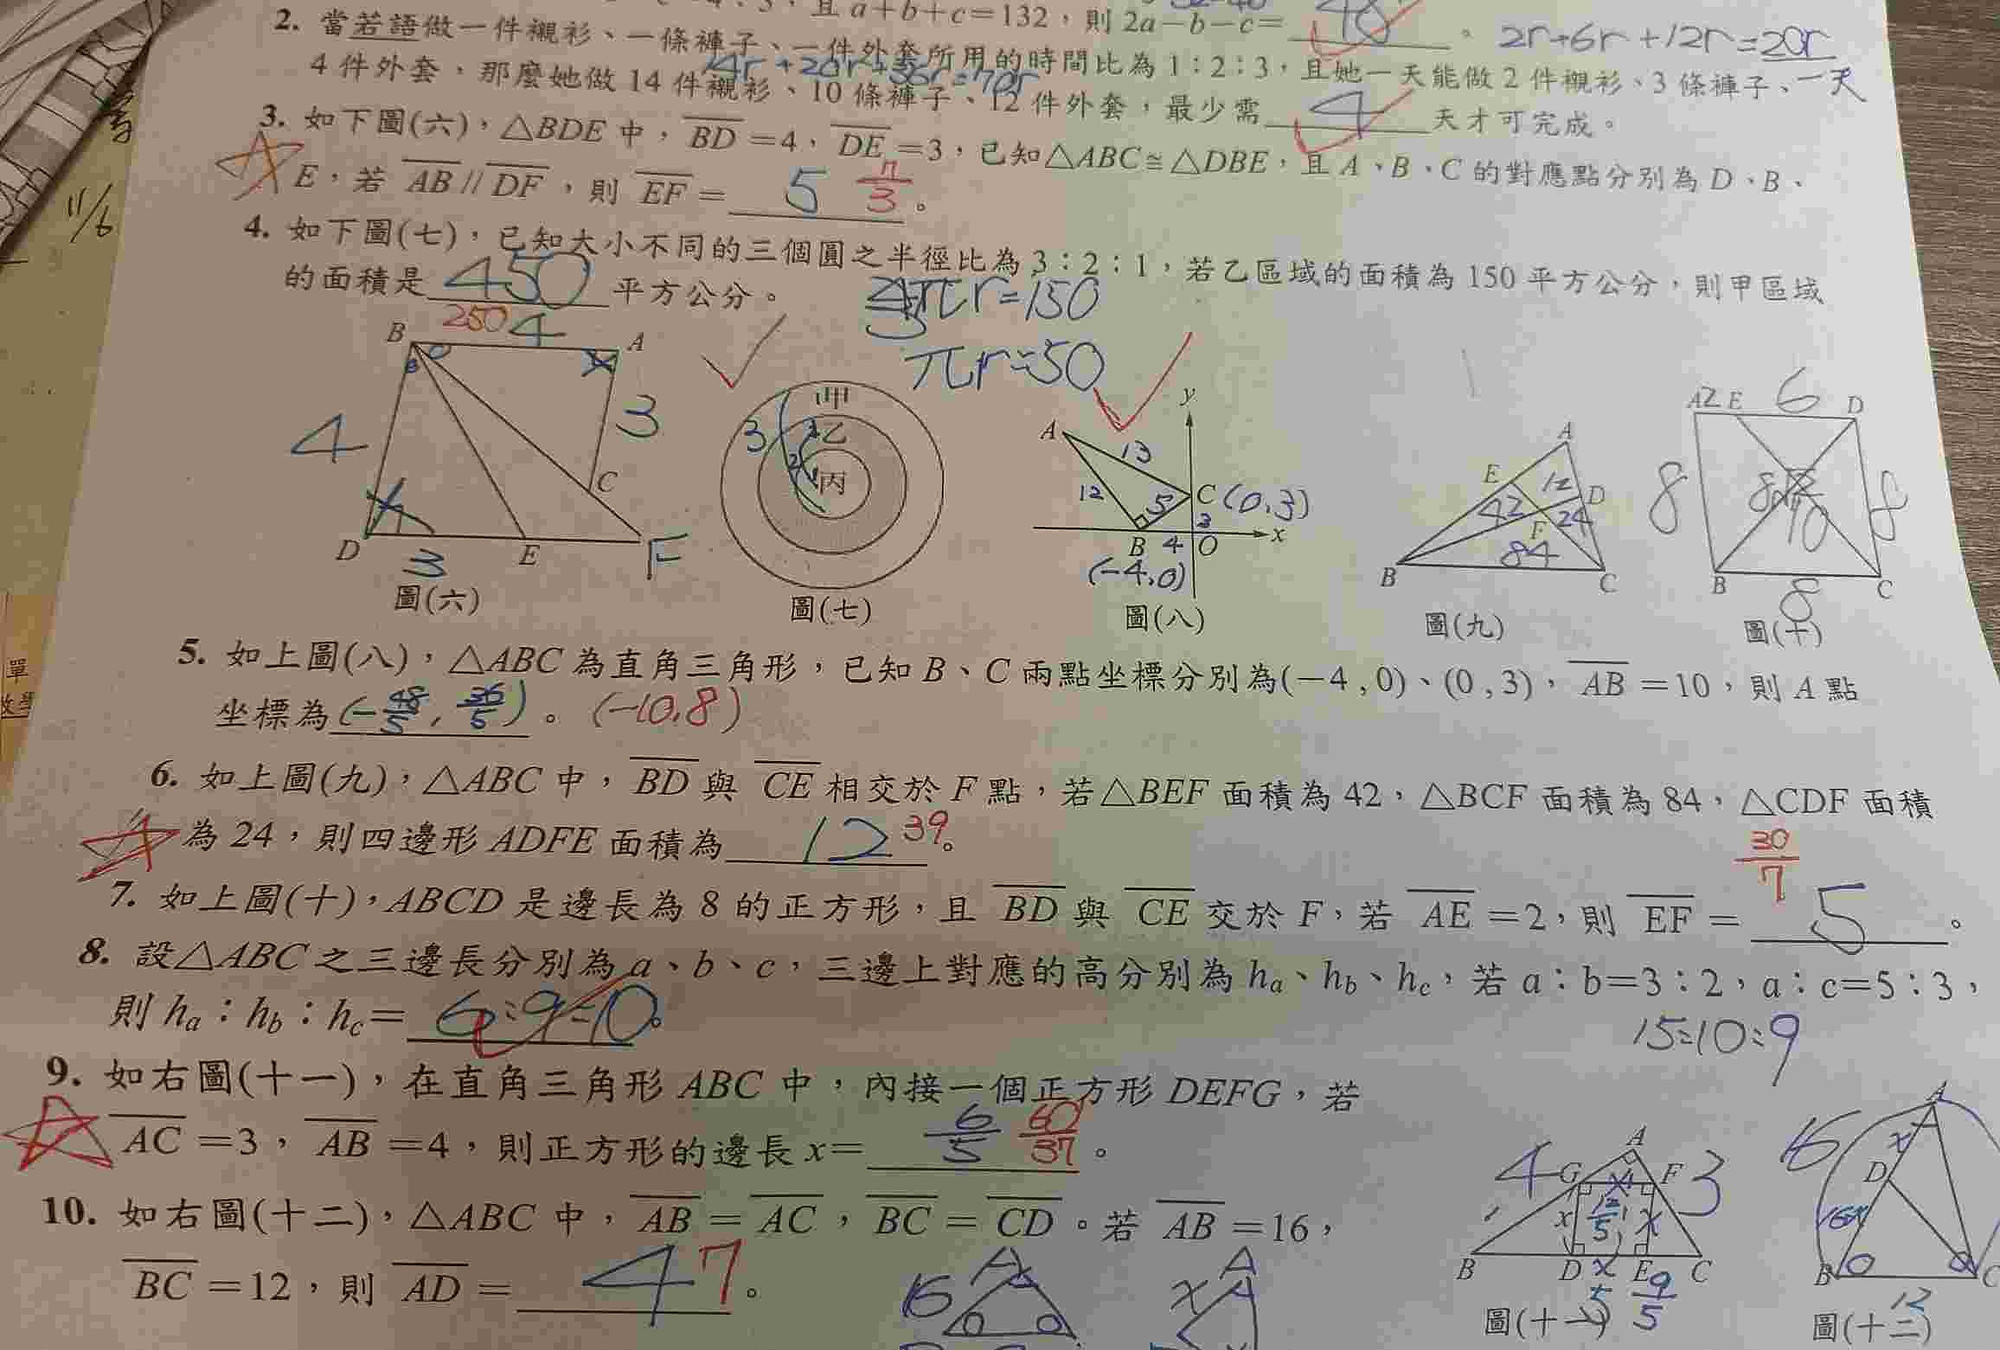 且 a+b+c=132，則 2a-b-c= 48 。
2. 當若語做一件襯衫、一條褲子、一件外套所用的時間比為 1：2：3，且她一天能做 2 件襯衫、3 條褲子、
2r+6r+12r=20r
一天
14r+20r+36r=70r
4 件外套，那麼她做 14 件襯衫、10 條褲子、12 件外套，最少需 4 天才可完成。
3. 如下圖(六)，△BDE 中，BD=4，DE=3，已知△ABC≅△DBE，且 A、B、C 的對應點分別為 D、B、
E，若 AB // DF，則 EF= 5 7/3 。
11/6
4. 如下圖(七)，已知大小不同的三個圓之半徑比為 3：2：1，若乙區域的面積為 150 平方公分，則甲區域
的面積是 450 平方公分。
250
πr=150
πr=50
B 4 A
4 3
C
D 3 E F
圖(六)
甲
3 乙
2
丙
圖(七)
y
A 13
12 5 C (0,3)
3
B 4 O x
(-4,0)
圖(八)
A
E 12 D
42 F 24
B 84 C
圖(九)
A 2 E 6 D
8 8
B 8 C
圖(十)
5. 如上圖(八)，△ABC 為直角三角形，已知 B、C 兩點坐標分別為(-4 , 0)、(0 , 3)，AB=10，則 A 點
坐標為 (-48/5, 36/5) 。 (-10,8)
單
數學
6. 如上圖(九)，△ABC 中，BD 與 CE 相交於 F 點，若△BEF 面積為 42，△BCF 面積為 84，△CDF 面積
為 24，則四邊形 ADFE 面積為 12 39 。
7. 如上圖(十)，ABCD 是邊長為 8 的正方形，且 BD 與 CE 交於 F，若 AE=2，則 EF= 5 。
30/7
8. 設△ABC 之三邊長分別為 a、b、c，三邊上對應的高分別為 ha、hb、hc，若 a：b=3：2，a：c=5：3，
則 ha：hb：hc= 6:9:10 。
15:10:9
9. 如右圖(十一)，在直角三角形 ABC 中，內接一個正方形 DEFG，若
AC=3，AB=4，則正方形的邊長 x= 6/5 60/37 。
10. 如右圖(十二)，△ABC 中，AB=AC，BC=CD。若 AB=16，
BC=12，則 AD= 4 7 。
16 A
x A
A
4 G F 3
x 12/5 x
B D x E C
9/5
圖(十一)
A
16 x
D
16-x
B C
12
圖(十二)